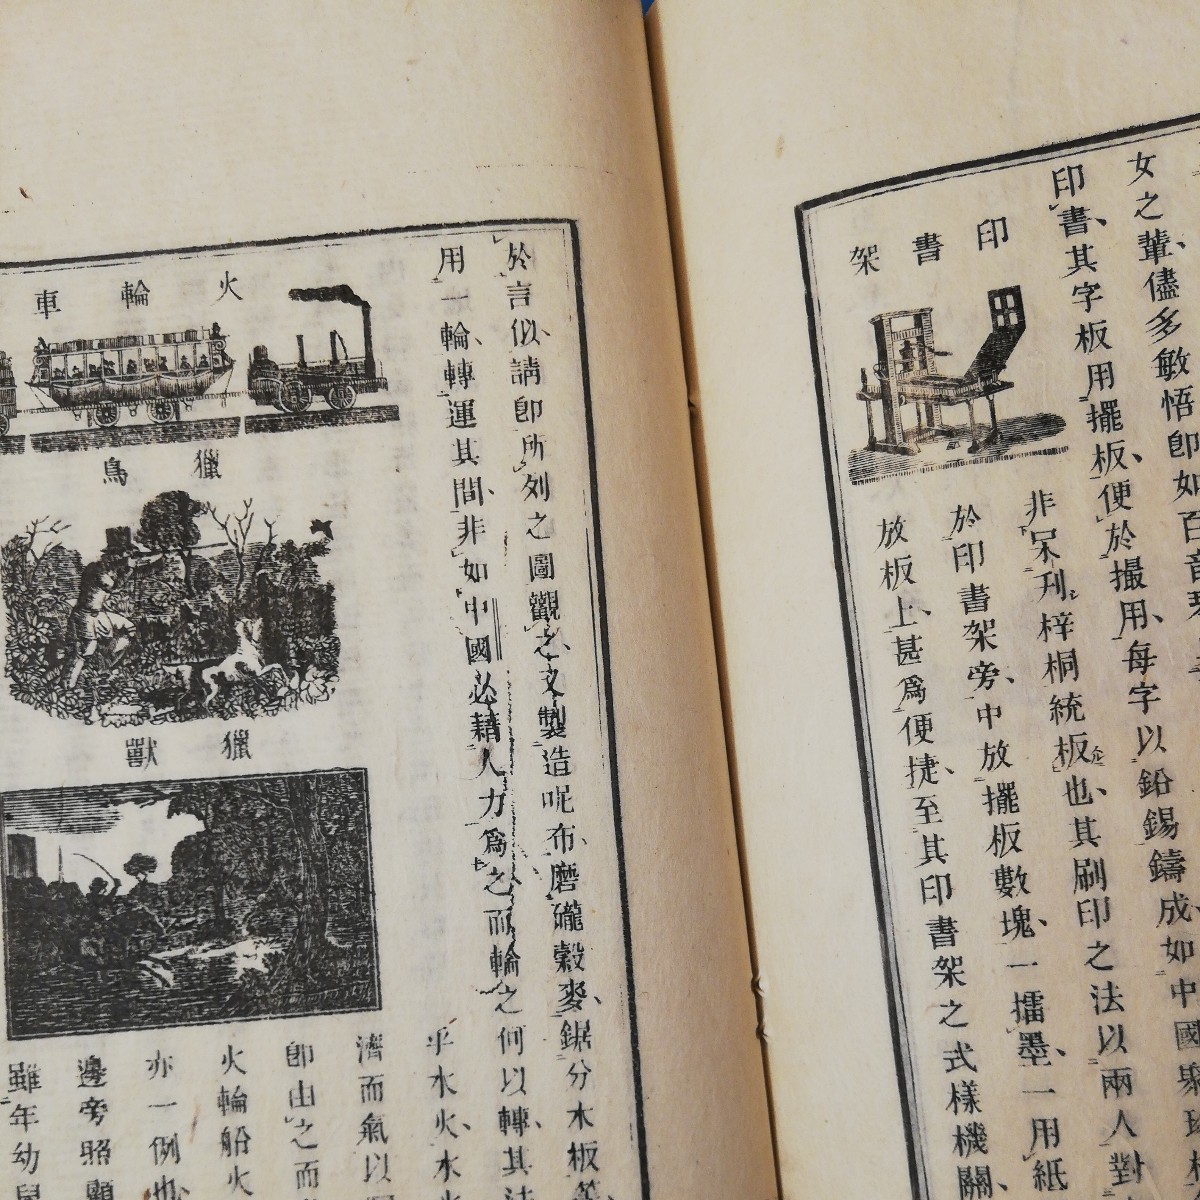 女之輩、儘多敏悟、卽如百音琴
印書、其字板用擺板、便於撮用、每字以鉛錫鑄成、如中國
印書架
非呆刋梓桐統板也、其刷印之法以兩人對
於印書架旁、中放擺板數塊、一擂墨、一用紙
放板上、甚爲便捷、至其印書架之式樣機關、
於言似、請卽所列之圖觀之、又製造呢布、磨礲穀麥、鋸分木板
用一輪轉運其間、非如中國必藉人力爲之、而輪之何以轉、其
火輪車
獵鳥
獵獸
乎水火、水
濟而氣以
卽由之而
火輪船火
亦一例也、
邊旁照
雖年幼